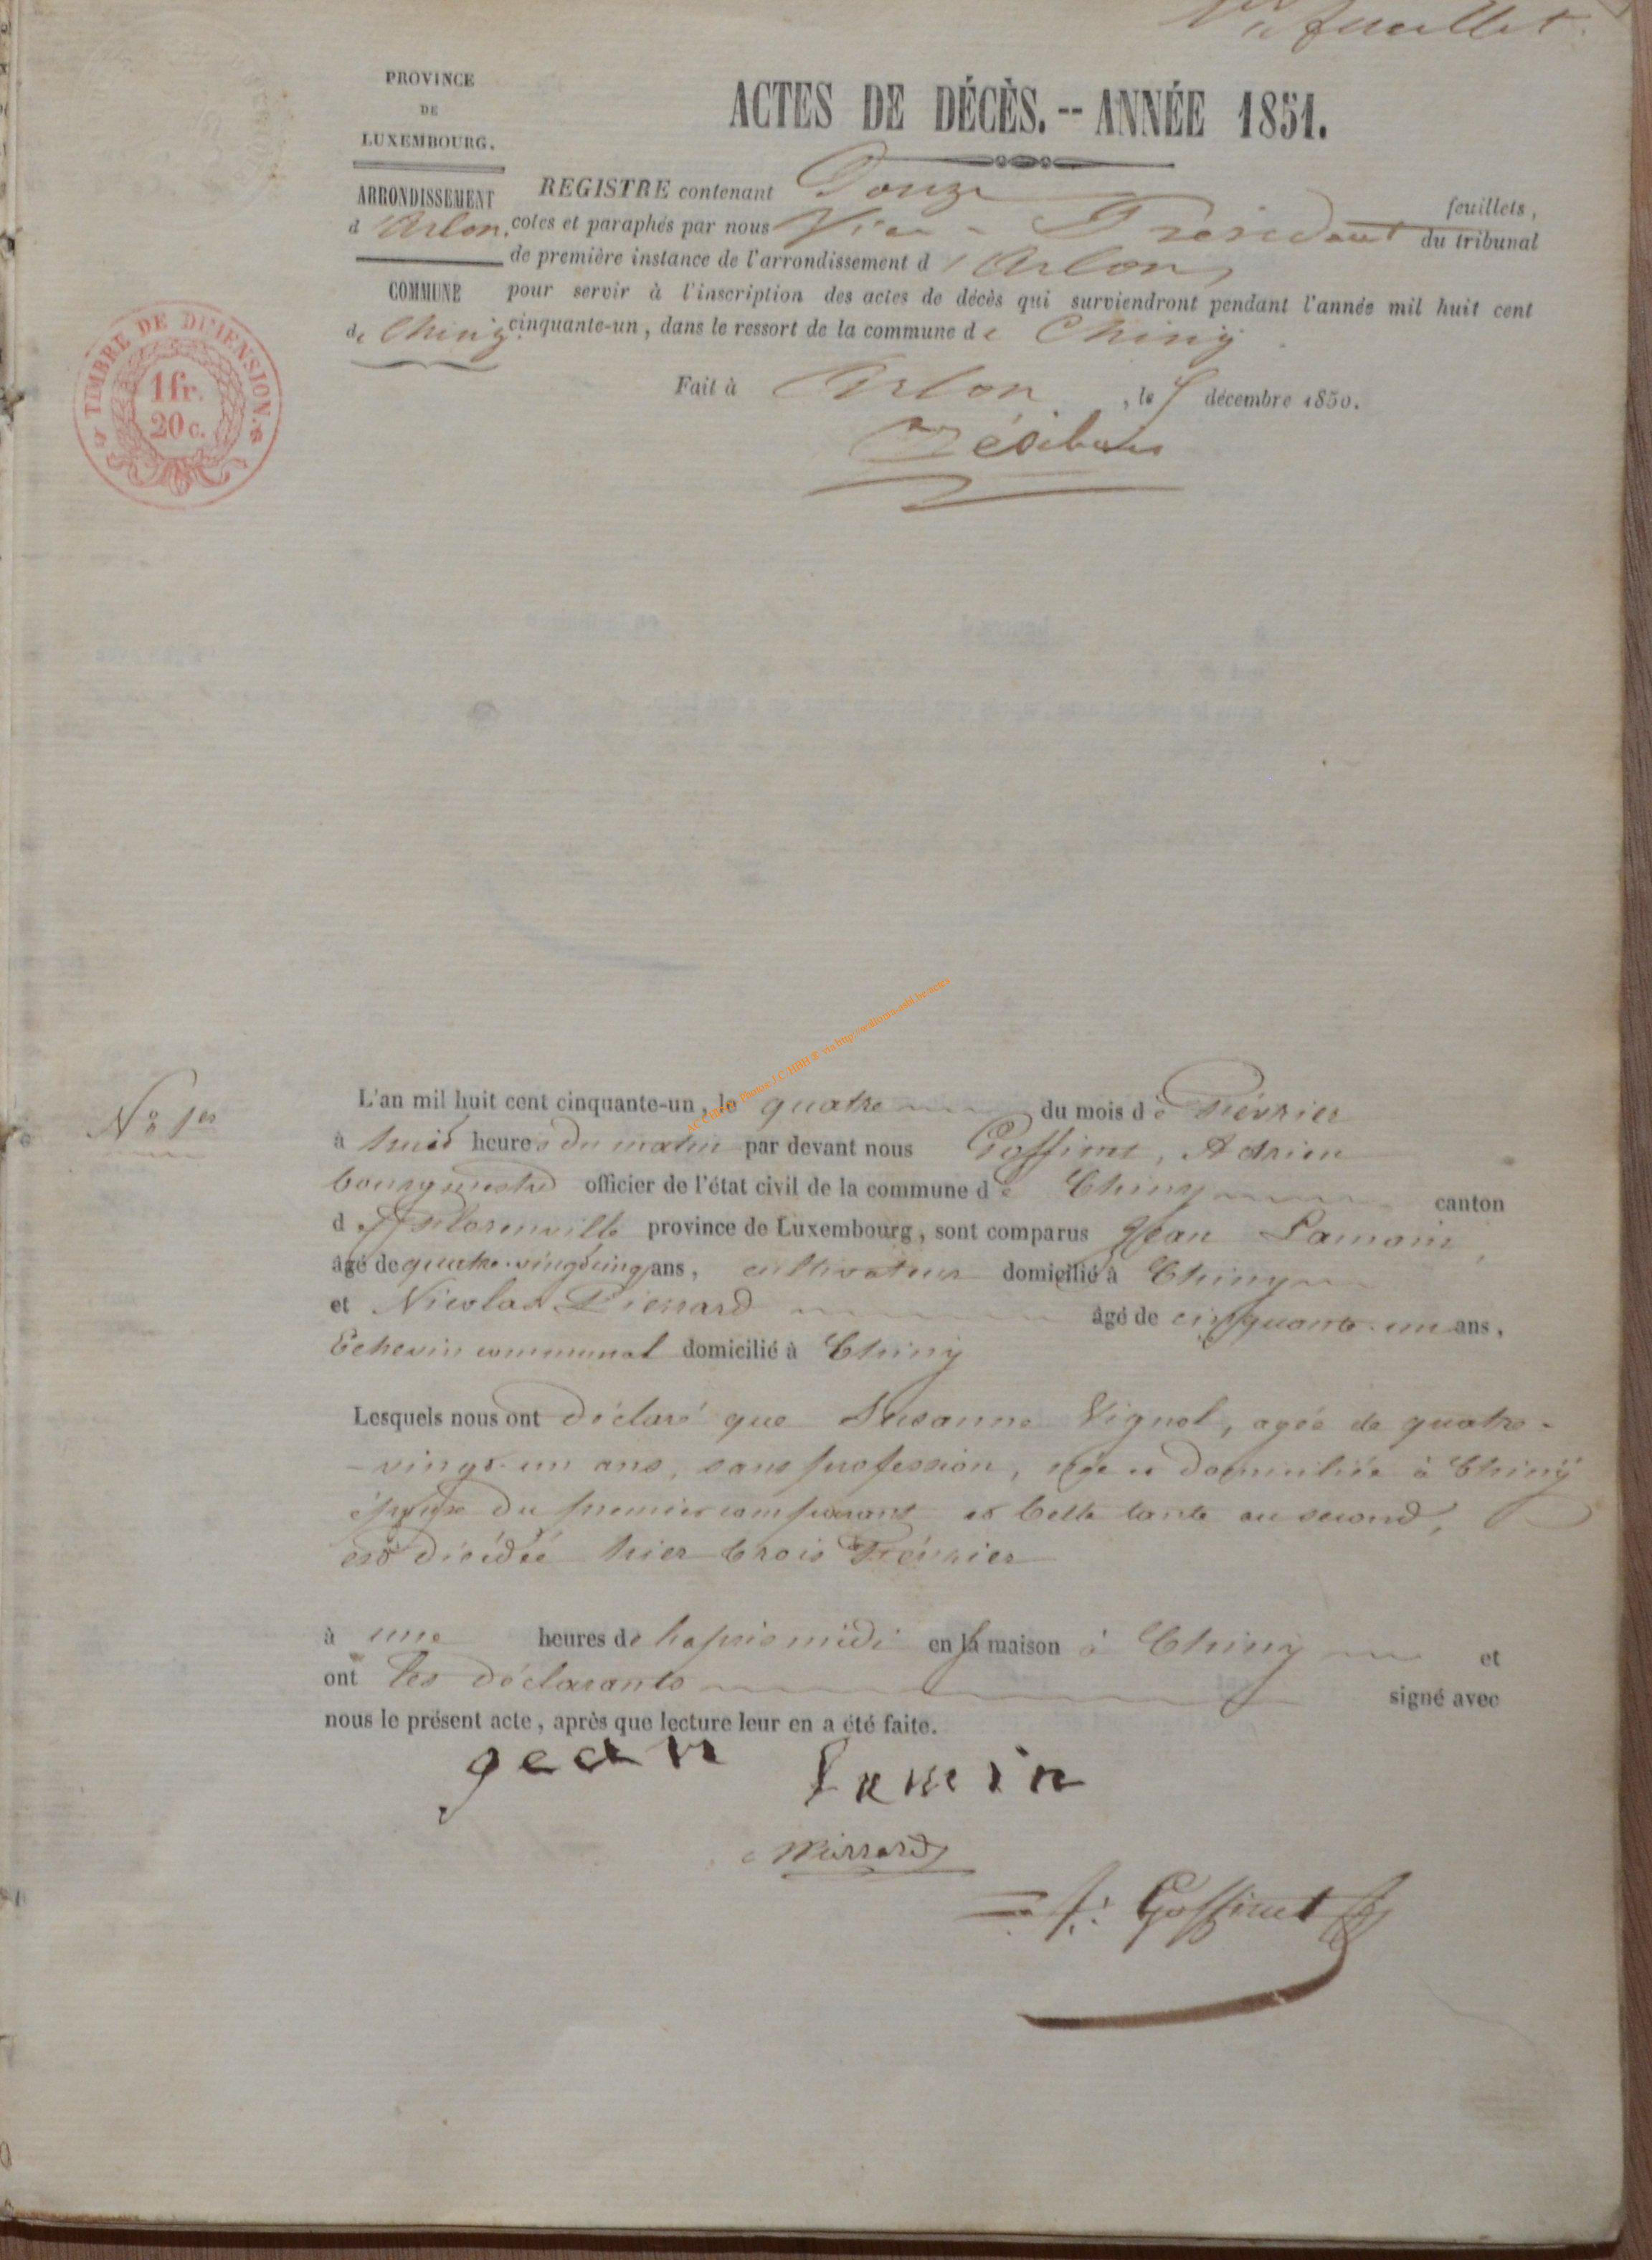 1er feuillet
PROVINCE
DE
LUXEMBOURG.
ACTES DE DÉCÈS. -- ANNÉE 1851.
ARRONDISSEMENT
d'Arlon.
COMMUNE
de Chiny.
REGISTRE contenant Douze feuillets,
cotés et paraphés par nous Vice-Président du tribunal
de première instance de l'arrondissement d'Arlon
pour servir à l'inscription des actes de décès qui surviendront pendant l'année mil huit cent
cinquante-un, dans le ressort de la commune de Chiny.
Fait à Arlon, le décembre 1850.
TIMBRE DE DIMENSION.
1 fr.
20 c.
No 1er
L'an mil huit cent cinquante-un, le quatre du mois de Février
à huit heures du matin par devant nous Goffinet, Adrien
bourgmestre officier de l'état civil de la commune de Chiny canton
de Florenville province de Luxembourg, sont comparus Jean Lamoin,
âgé de quatre-vingt-cinq ans, cultivateur domicilié à Chiny
et Nicolas Pierrard âgé de cinquante-un ans,
Echevin communal domicilié à Chiny
Lesquels nous ont déclaré que Susanne Vignol, agée de quatre-
-vingt-un ans, sans profession, née et domiciliée à Chiny
épouse du premier comparant et belle tante au second,
est décédée hier trois Février
à une heures de l'après midi en sa maison à Chiny et
ont les déclarants signé avec
nous le présent acte, après que lecture leur en a été faite.
Jean Lamin
Pierrard
Goffinet